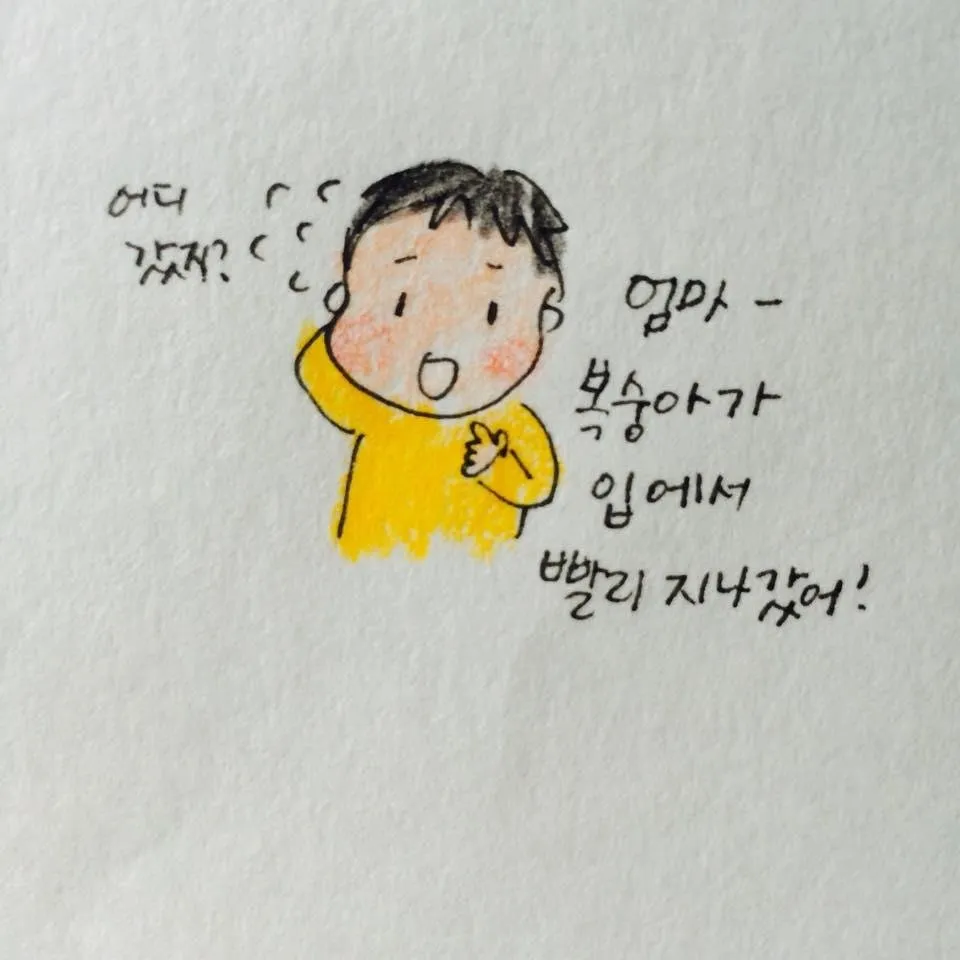 어디
갔지?
엄마 -
복숭아가
입에서
빨리 지나갔어!